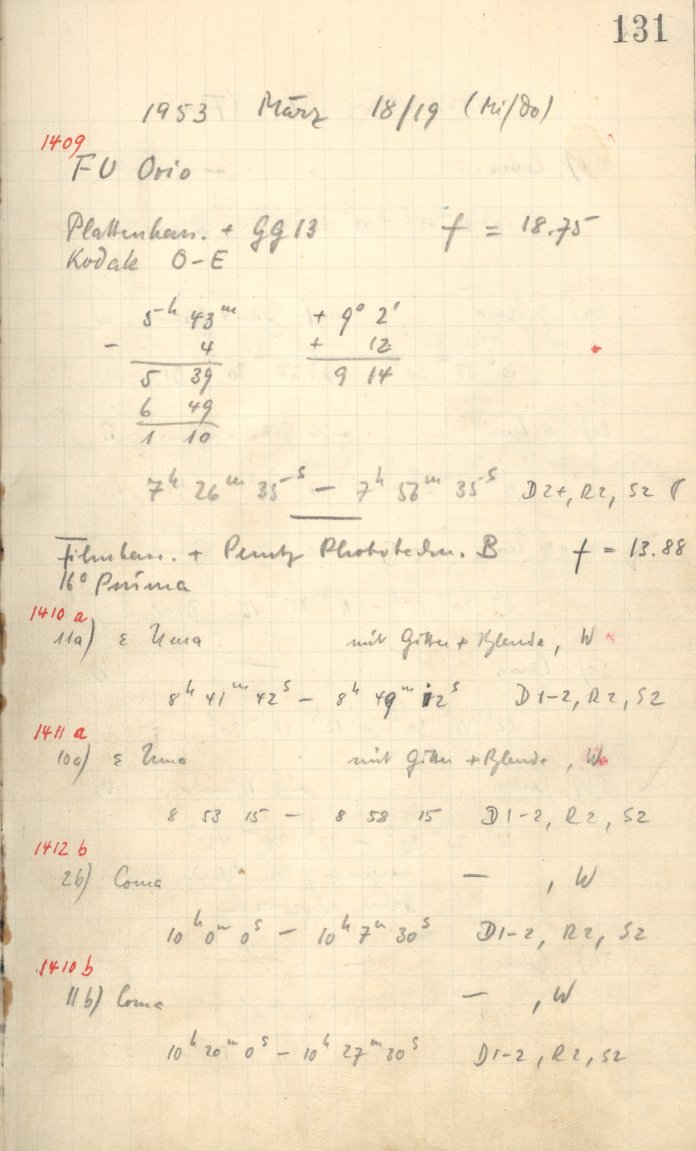 131
1953 März 18/19 (Mi/Do)
1409
FU Orio
Plattenkan. + GG 13 f = 18.75
Kodak O-E
5ʰ 43ᵐ + 9° 2'
- 4 + 12
5 39 9 14
6 49
1 10
7ʰ 26ᵐ 35ˢ - 7ʰ 56ᵐ 35ˢ D2+, R2, S2
Filmkam. + Perutz Phototechn. B f = 13.88
16° Perüma
1410 a
11a) ε Uma mit Gitter + Blende, W
8ʰ 41ᵐ 42ˢ - 8ʰ 49ᵐ 12ˢ D1-2, R2, S2
1411 a
10a) ε Uma mit Gitter + Blende, W
8 53 15 - 8 58 15 D1-2, R2, S2
1412 b
2b) Coma — , W
10ʰ 0ᵐ 0ˢ - 10ʰ 7ᵐ 30ˢ D1-2, R2, S2
1410 b
11b) Coma — , W
10ʰ 20ᵐ 0ˢ - 10ʰ 27ᵐ 30ˢ D1-2, R2, S2